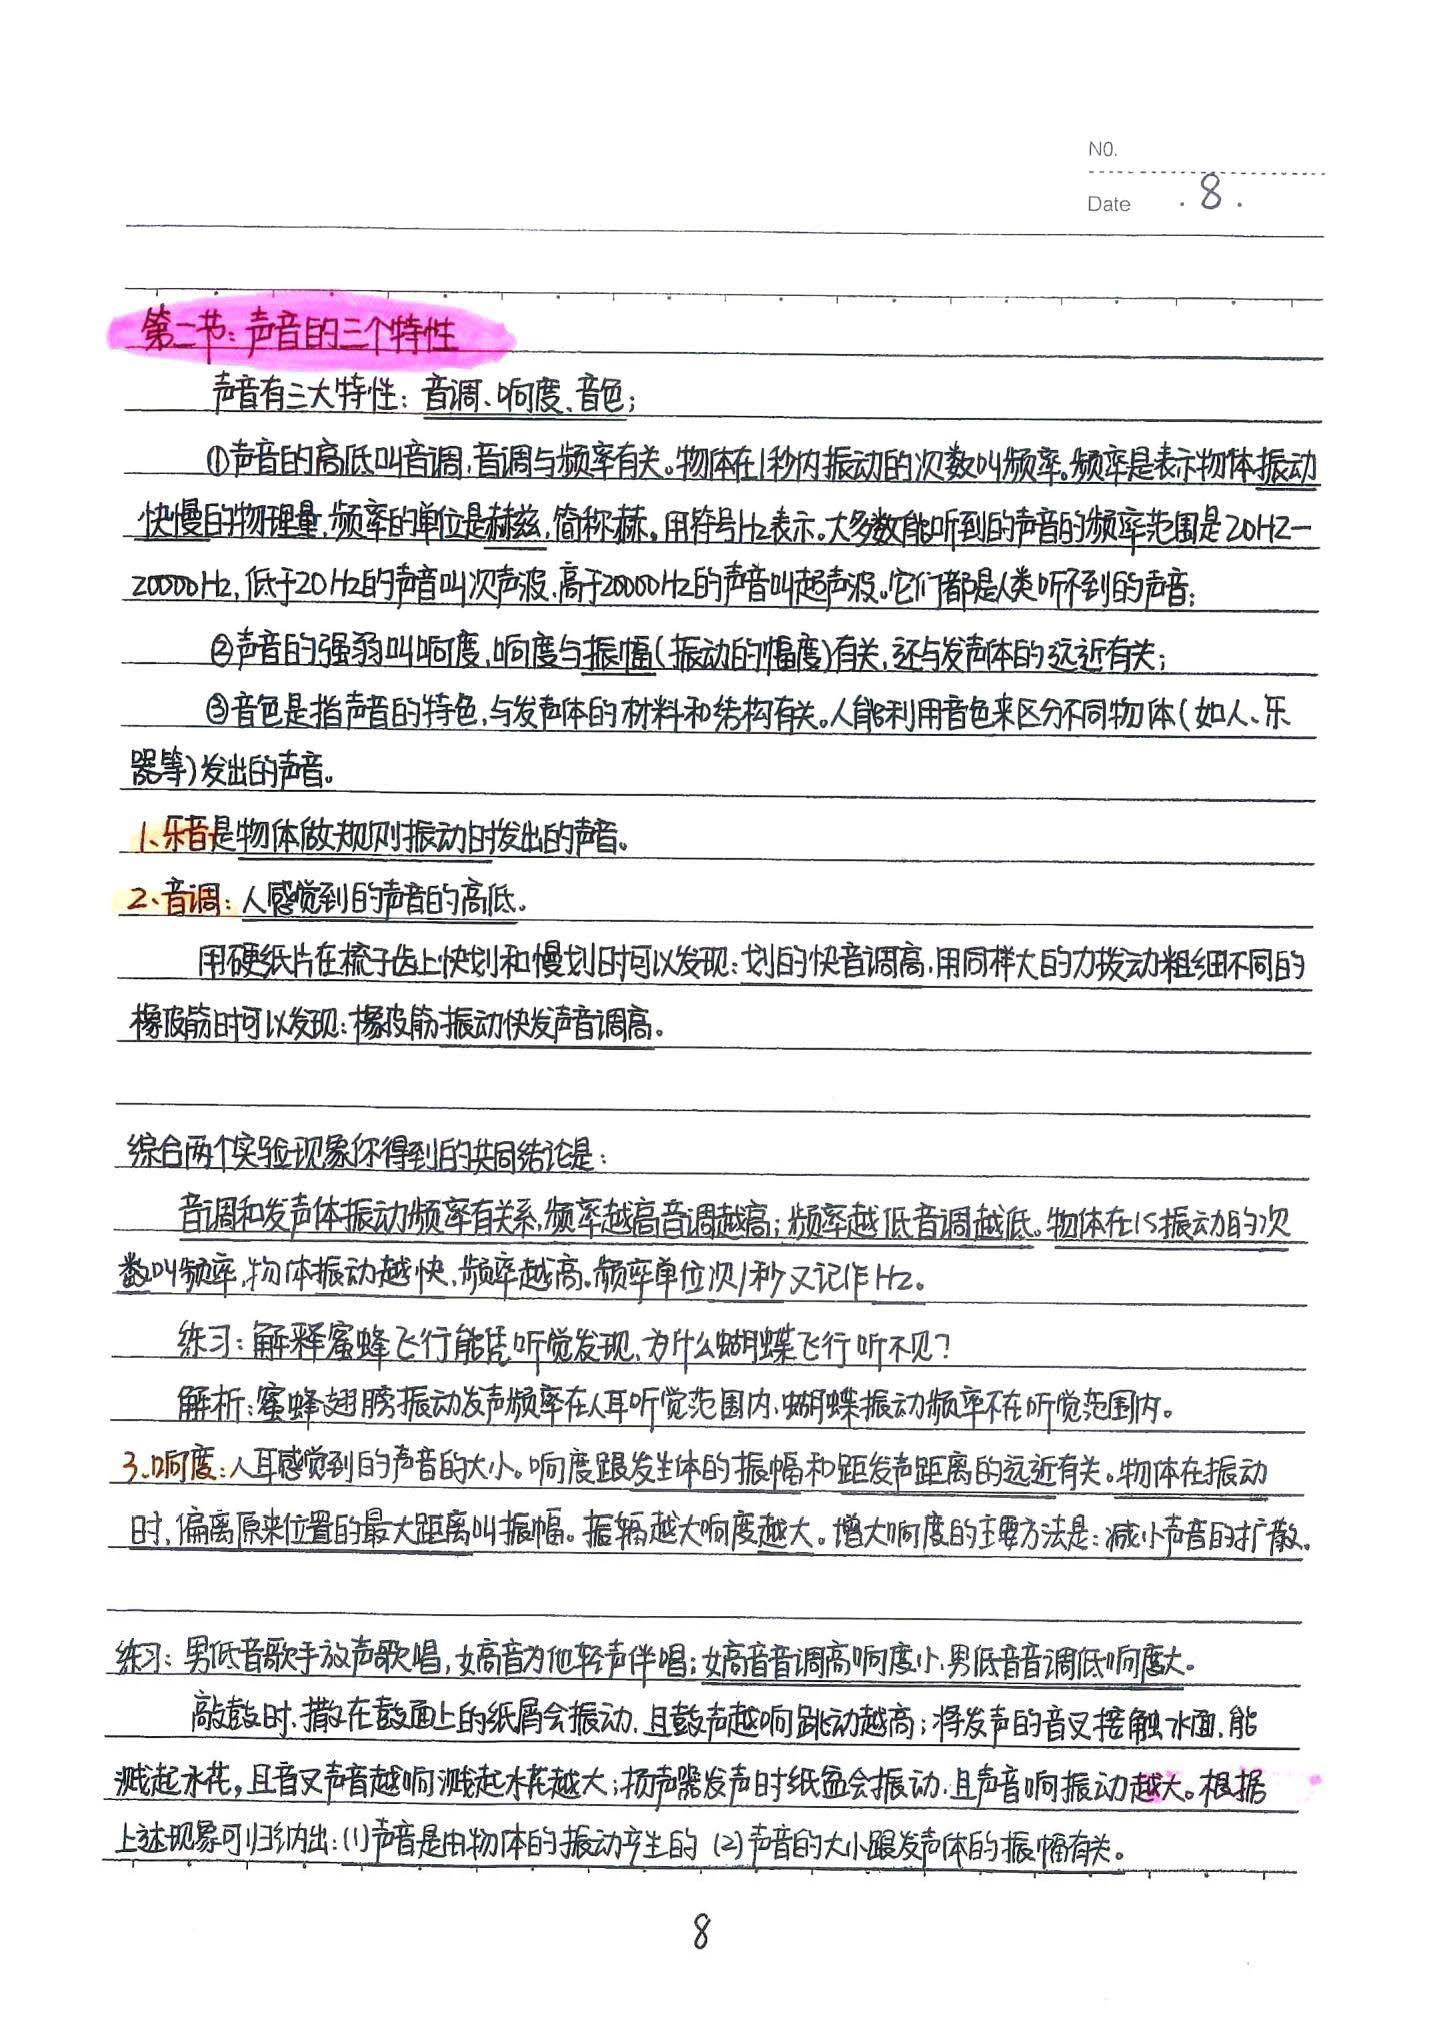 NO.
Date .8.
第二节：声音的三个特性
声音有三大特性：音调、响度、音色；
①声音的高低叫音调，音调与频率有关。物体在1秒内振动的次数叫频率。频率是表示物体振动
快慢的物理量，频率的单位是赫兹，简称赫。用符号Hz表示。大多数能听到的声音的频率范围是20HZ—
20000Hz，低于20Hz的声音叫次声波，高于20000Hz的声音叫超声波。它们都是人类听不到的声音；
②声音的强弱叫响度，响度与振幅（振动的幅度）有关，还与发声体的远近有关；
③音色是指声音的特色，与发声体的材料和结构有关。人能利用音色来区分不同物体（如人、乐
器等）发出的声音。
1、乐音是物体做规则振动时发出的声音。
2、音调：人感觉到的声音的高低。
用硬纸片在梳子齿上快划和慢划时可以发现：划的快音调高，用同样大的力拨动粗细不同的
橡皮筋时可以发现：橡皮筋振动快发声音调高。
综合两个实验现象你得到的共同结论是：
音调和发声体振动频率有关系，频率越高音调越高；频率越低音调越低。物体在1s振动的次
数叫频率，物体振动越快，频率越高。频率单位次/秒又记作Hz。
练习：解释蜜蜂飞行能凭听觉发现，为什么蝴蝶飞行听不见？
解析：蜜蜂翅膀振动发声频率在人耳听觉范围内，蝴蝶振动频率不在听觉范围内。
3、响度：人耳感觉到的声音的大小。响度跟发生体的振幅和距发声距离的远近有关。物体在振动
时，偏离原来位置的最大距离叫振幅。振辐越大响度越大。增大响度的主要方法是：减小声音的扩散。
练习：男低音歌手放声歌唱，女高音为他轻声伴唱：女高音音调高响度小，男低音音调低响度大。
敲鼓时，撒在鼓面上的纸屑会振动，且鼓声越响跳动越高；将发声的音叉接触水面，能
溅起水花，且音叉声音越响溅起水花越大；扬声器发声时纸盆会振动，且声音响振动越大。根据
上述现象可归纳出：(1)声音是由物体的振动产生的 (2)声音的大小跟发声体的振幅有关。
8